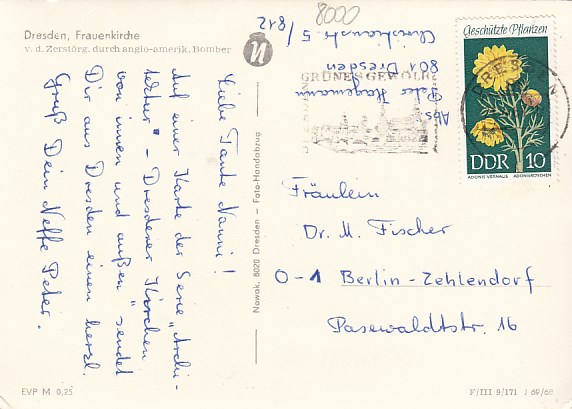 Dresden, Frauenkirche
v. d. Zerstörg. durch anglo-amerik. Bomber
8000
Liebe Tante Nanni!
Auf einer Karte der Serie „Archi-
tektur" - Dresdener Kirchen
von innen und außen" sendet
Dir aus Dresden einen herzl.
Gruß Dein Neffe Peter.
Abs.
Peter Hagemann
801 Dresden
5/812
Nowak, 8020 Dresden - Foto-Handabzug
GRÜNES GEWÖLBE
DRESDEN
DRESDEN
Geschützte Pflanzen
DDR 10
ADONIS VERNALIS ADONISRÖSCHEN
Fräulein
Dr. M. Fischer
0-1 Berlin-Zehlendorf
Pasewaldtstr. 16
EVP M 0,25
F/III 9/171 J 69/68